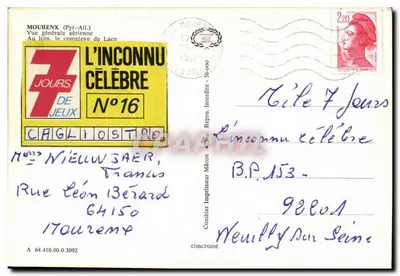 MOURENX (Pyr.-Atl.)
Vue générale aérienne
Au loin, le complexe de Lacq
7
JOURS
DE
JEUX
L'INCONNU
CÉLÈBRE
N° 16
CAGLIOSTRO
NIEUWJAER,
Francis
Rue Léon Bérard
64150
Mourenx
A 64.410.00.0.3092
Combier Imprimeur Mâcon
Repro. Interdite
cimcrome
2,20
Télé 7 Jours
L'inconnu célèbre
B.P. 153-
92201
Neuilly sur Seine